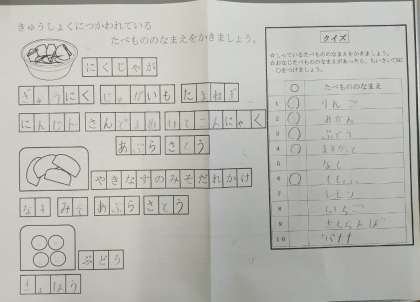 きゅうしょくにつかわれている
たべもののなまえをかきましょう。
にくじゃが
ぎゅうにく じゃがいも たまねぎ
にんじん さんどまめ いとこんにゃく
あぶら さとう
やきなすのみそだれかけ
なす みそ あぶら さとう
ぶどう
クイズ
☆しっているたべもののなまえをかきましょう。
☆おなじたべもののなまえがあったら、ちいさい
〇をつけましょう。
〇 たべもののなまえ
1 〇 りんご
2 〇 みかん
3 〇 ぶどう
4 〇
5 なし
6 〇
7
8 いちご
9 さくらんぼ
10 バナナ